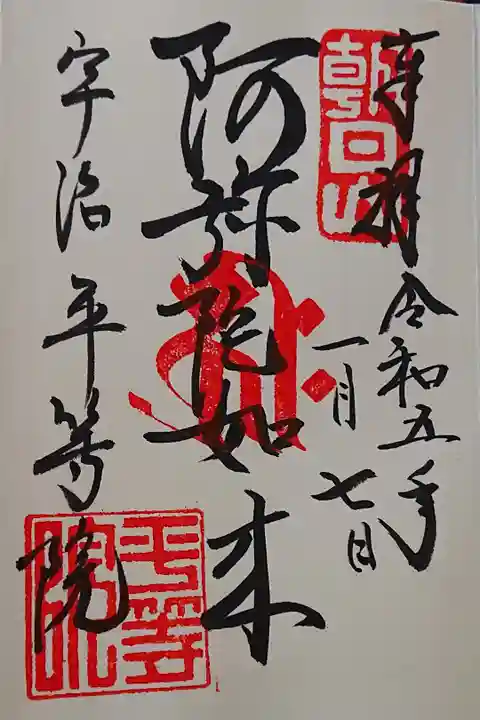 奉拝
令和五年
一月七日
朝日山
阿弥陀如来
宇治平等院
平等院